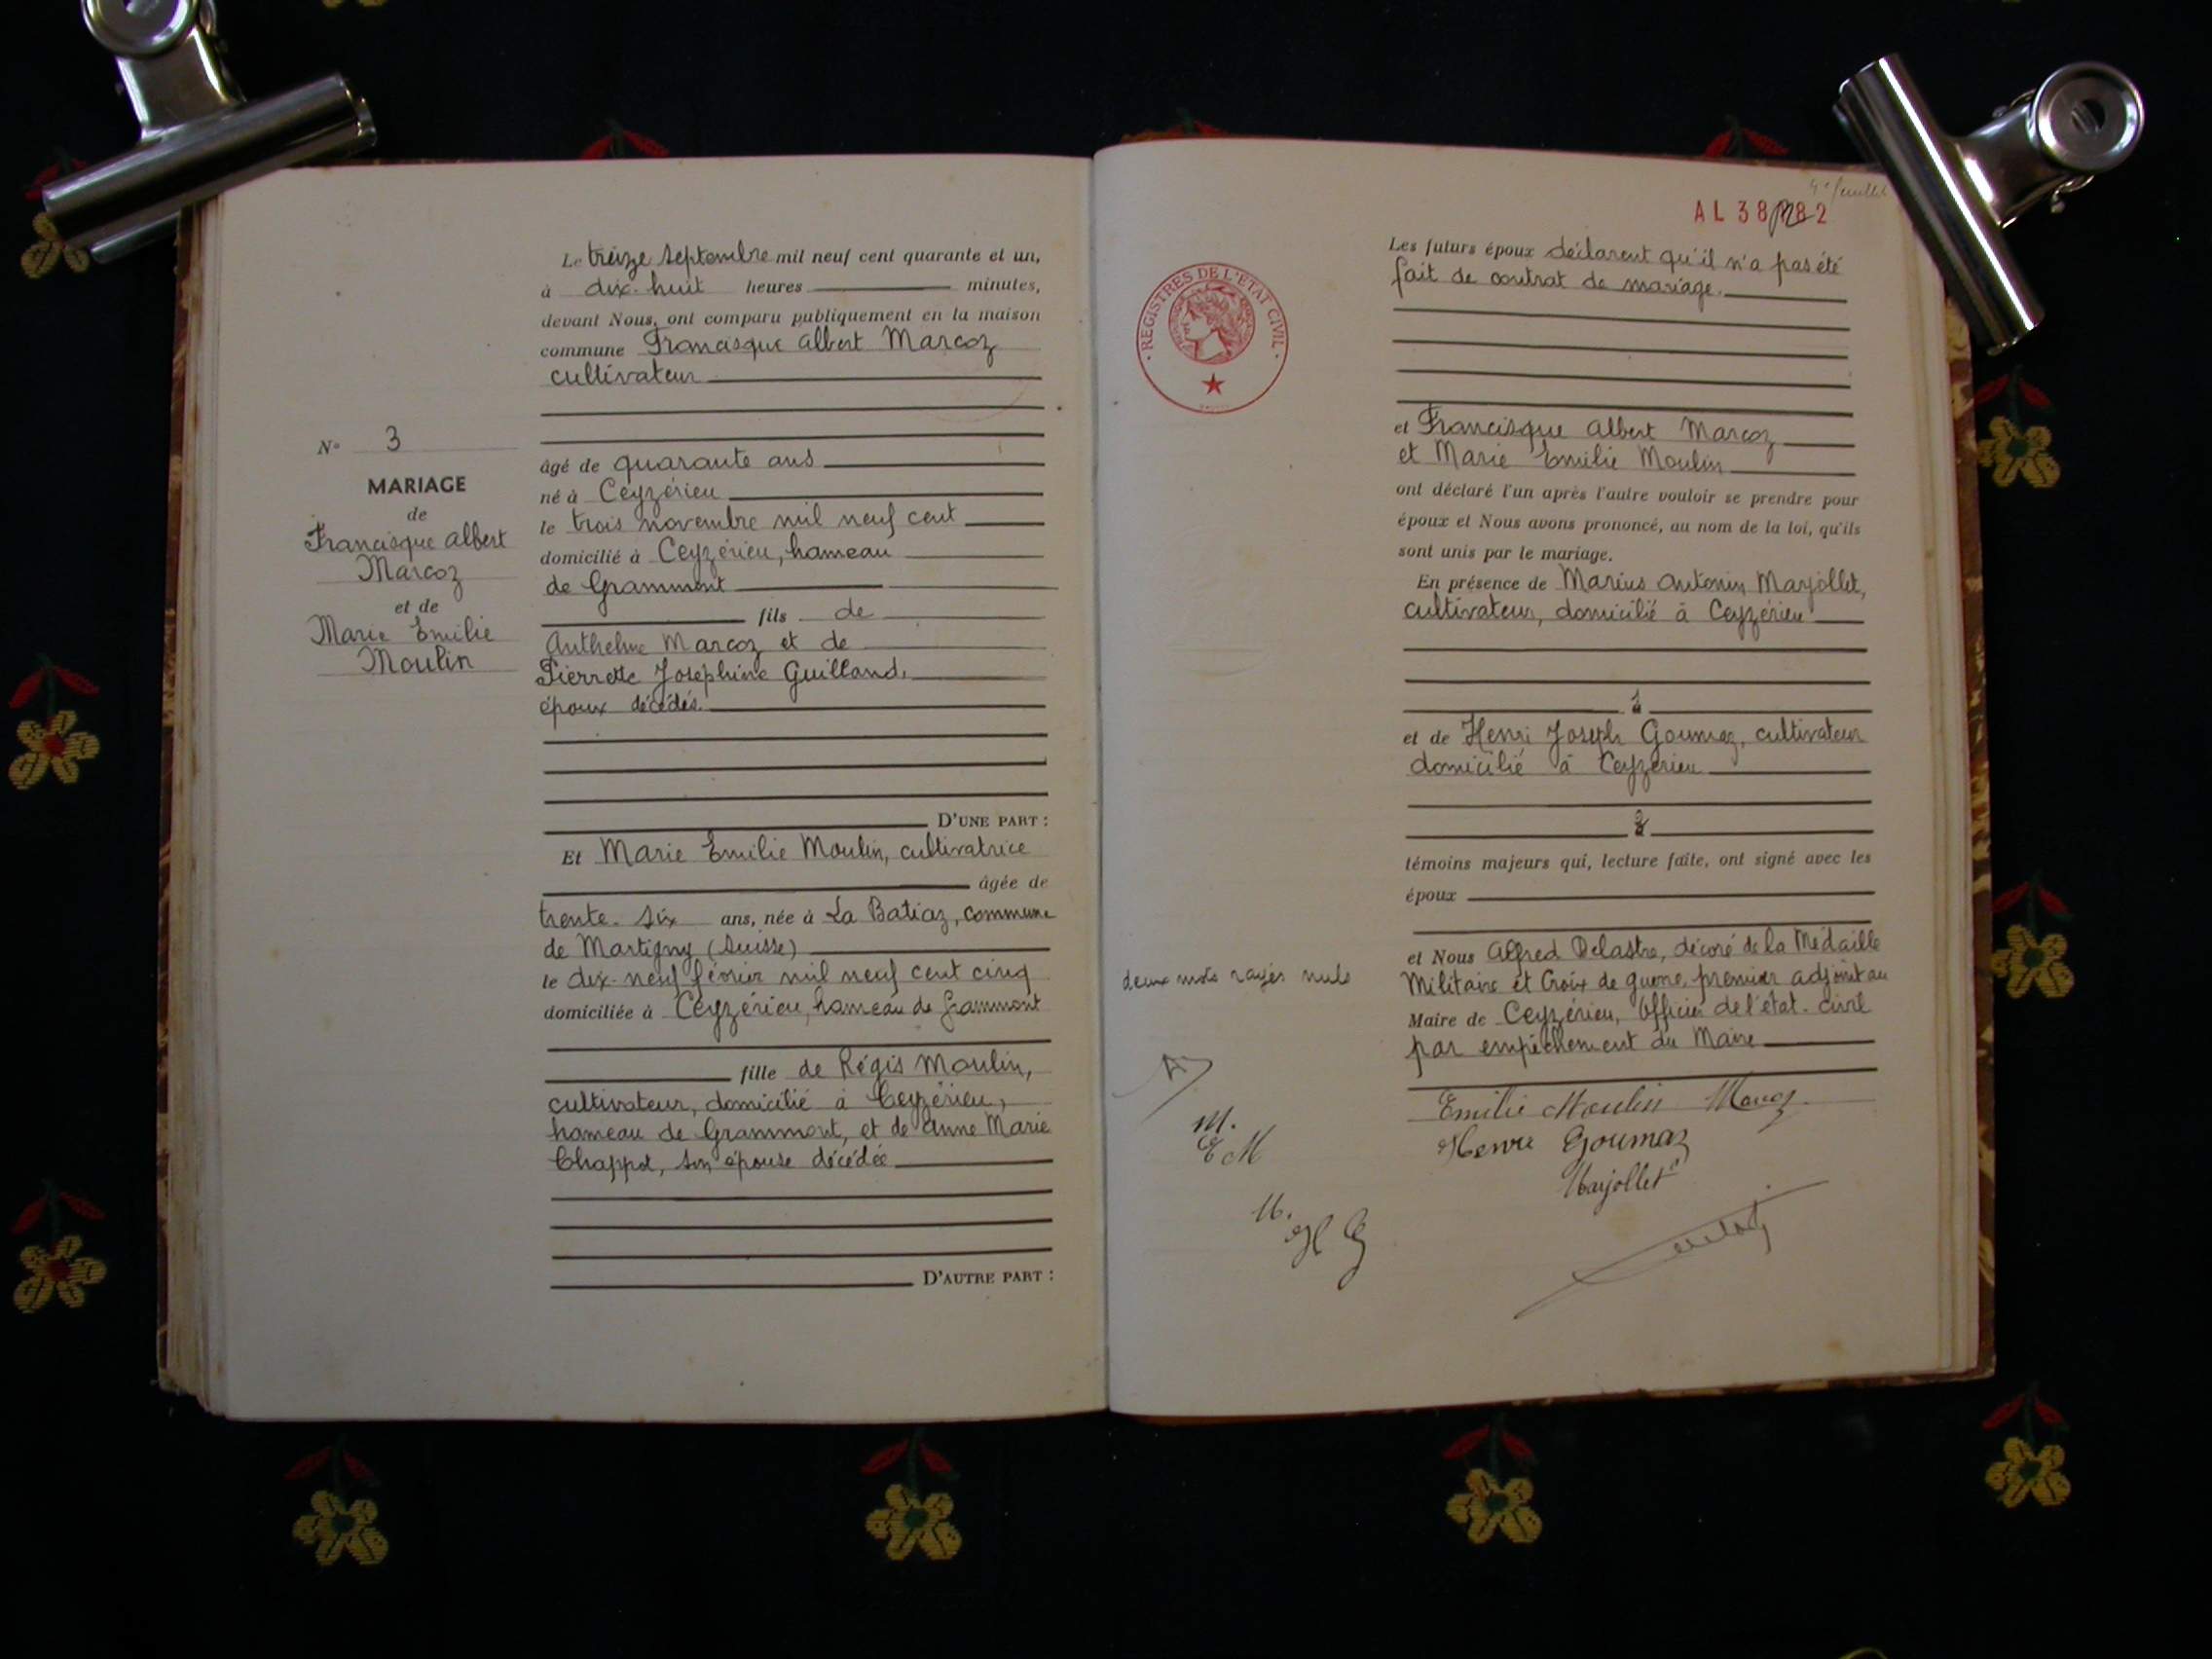 Le treize septembre mil neuf cent quarante et un,
à dix-huit heures minutes,
devant Nous, ont comparu publiquement en la maison
commune Francisque Albert Marcoz
cultivateur
âgé de quarante ans
né à Ceyzérieu
le trois novembre mil neuf cent
domicilié à Ceyzérieu, hameau
de Grammont
fils de
Anthelme Marcoz et de
Pierrette Joséphine Guilland,
époux décédés.
D'UNE PART :
Et Marie Emilie Moulin, cultivatrice
âgée de
trente-six ans, née à La Batiaz, commune
de Martigny (Suisse)
le dix-neuf février mil neuf cent cinq
domiciliée à Ceyzérieu, hameau de Grammont
fille de Régis Moulin,
cultivateur, domicilié à Ceyzérieu,
hameau de Grammont, et de Anne Marie
Chappot, son épouse décédée
D'AUTRE PART :
N° 3
MARIAGE
de
Francisque Albert
Marcoz
et de
Marie Emilie
Moulin
4e feuillet
AL 38 82
REGISTRES DE L'ETAT CIVIL
Les futurs époux déclarent qu'il n'a pas été
fait de contrat de mariage.
et Francisque Albert Marcoz
et Marie Emilie Moulin
ont déclaré l'un après l'autre vouloir se prendre pour
époux et Nous avons prononcé, au nom de la loi, qu'ils
sont unis par le mariage.
En présence de Marius Antonin Marjollet,
cultivateur, domicilié à Ceyzérieu
1
et de Henri Joseph Goumaz, cultivateur
domicilié à Ceyzérieu
2
témoins majeurs qui, lecture faite, ont signé avec les
époux
et Nous Alfred Delastre, décoré de la Médaille
Militaire et Croix de guerre, premier adjoint au
Maire de Ceyzérieu, Officier de l'état-civil
par empêchement du Maire
deux mots rayés nuls
M.
E M
M.
H G
Emilie Moulin Marcoz
Henri Goumaz
Marjollet